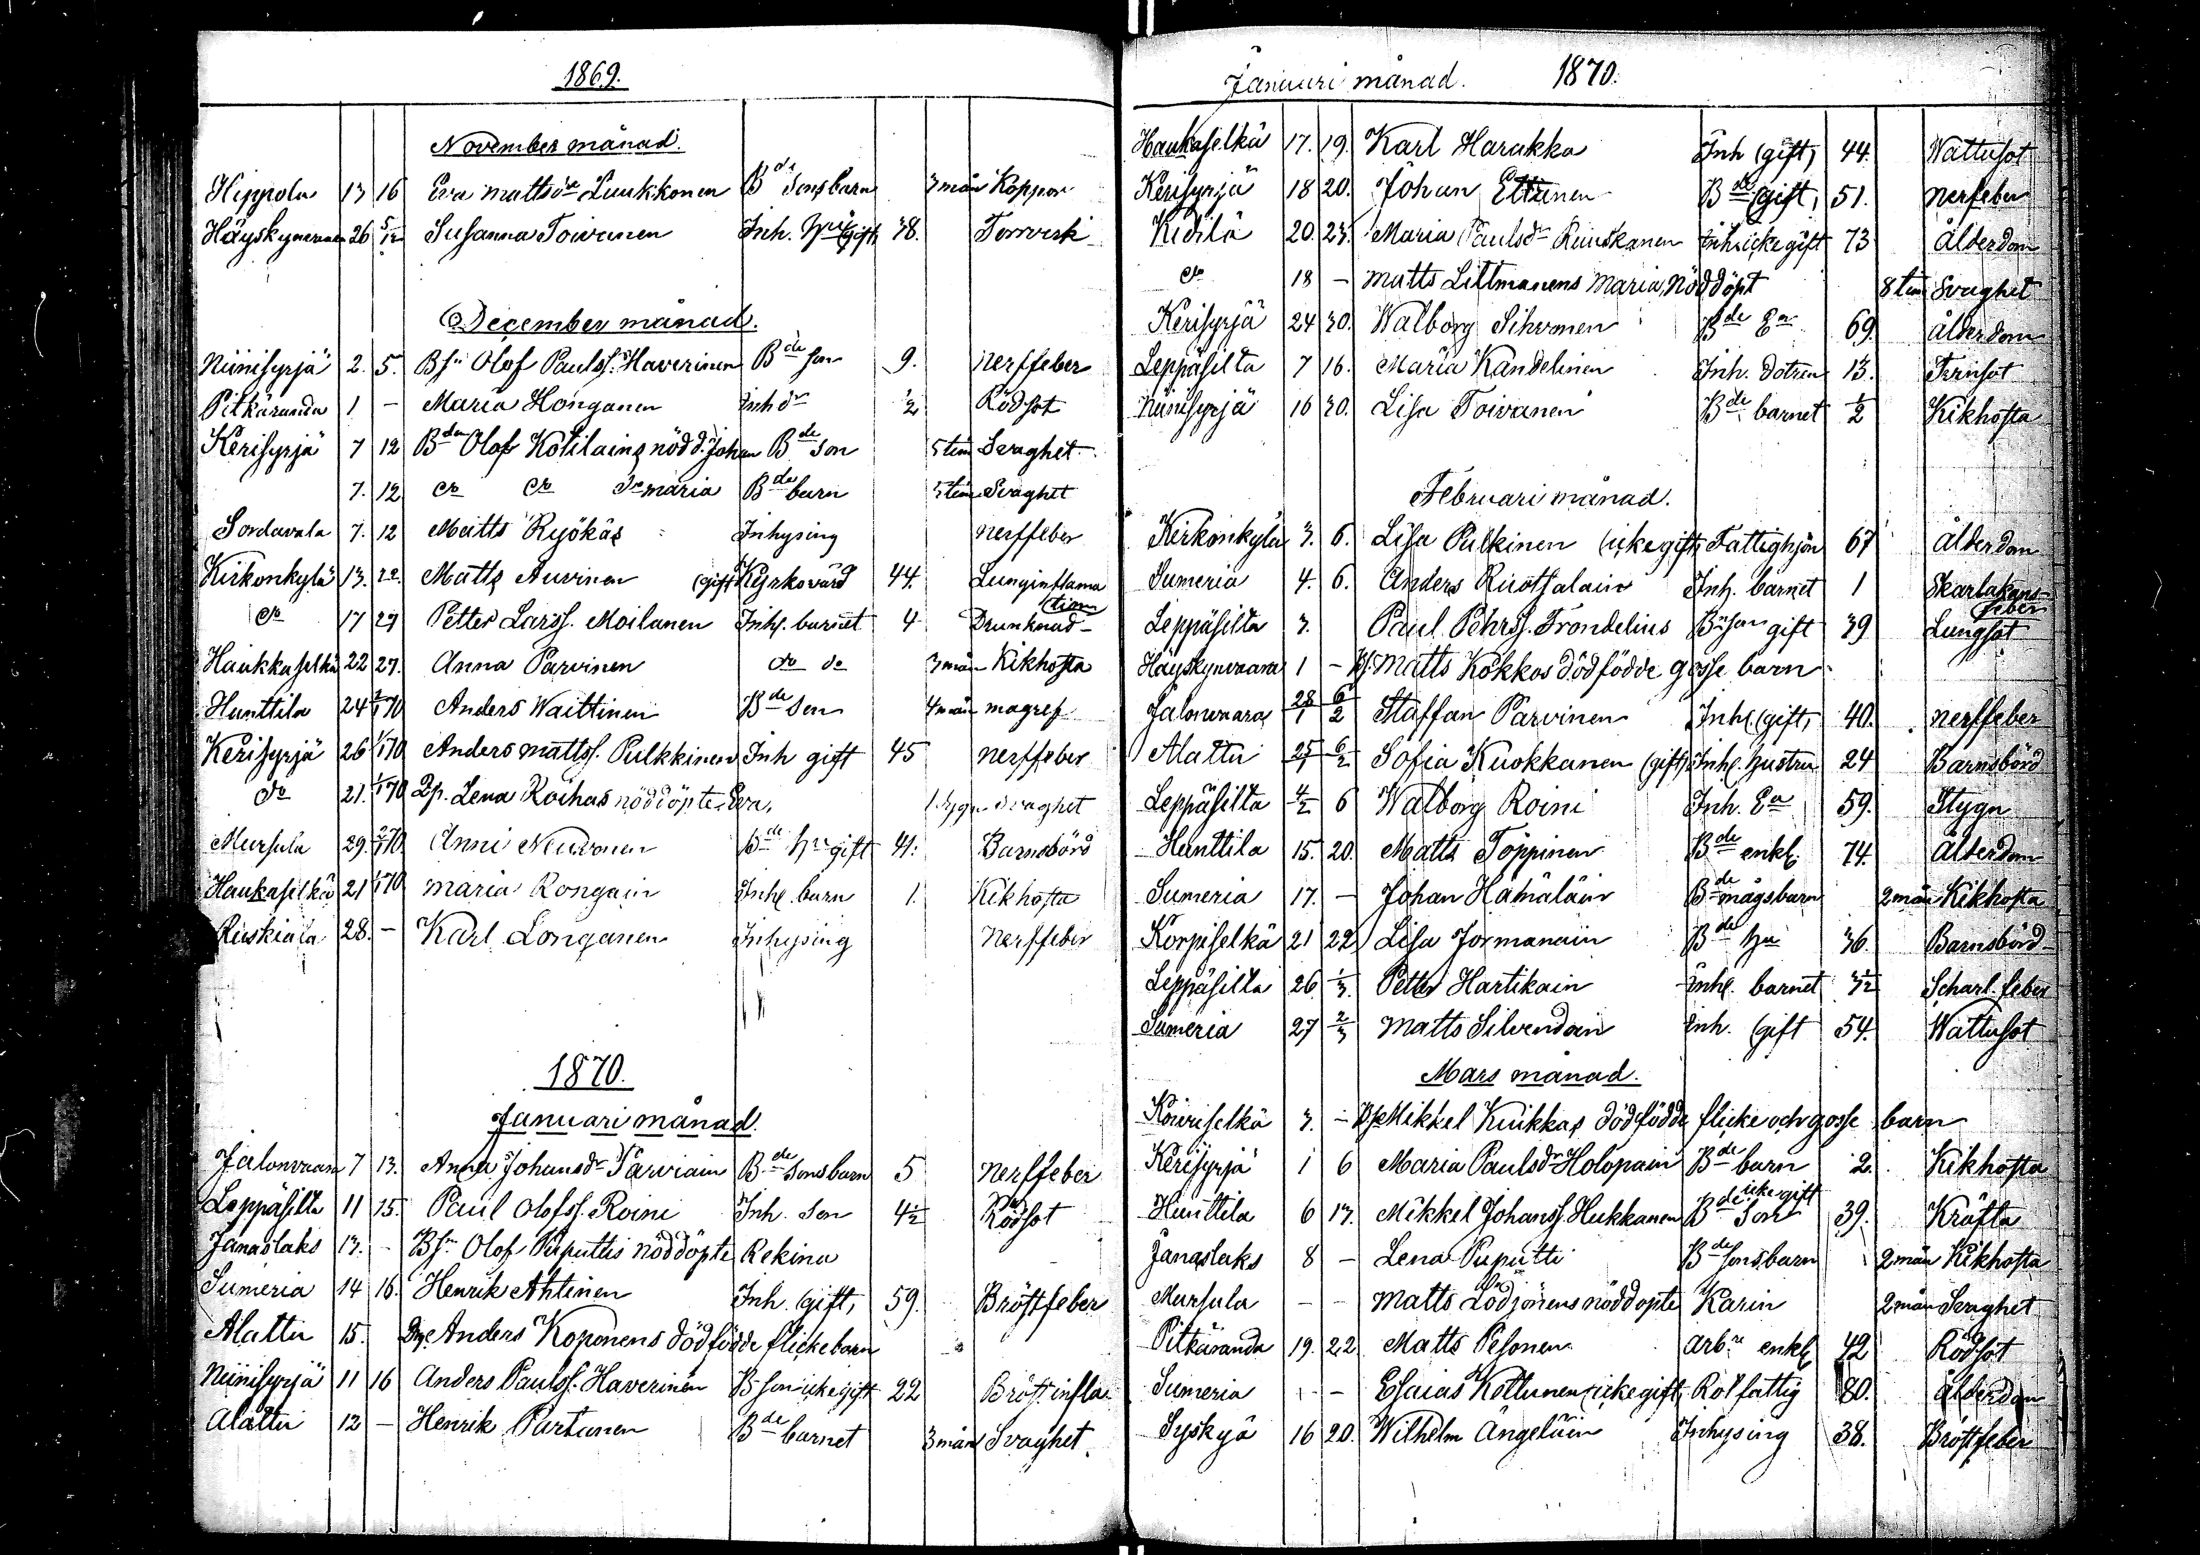 1869.
November månad.
Hippola 13 16 Eva Mattsdr Luukkonen Bde Sons barn 3 mån Koppor
Häyskynvaara 26 5/12 Susanna Toivanen Inh. hu (gift) 38. Torrverk
December månad.
Niinisyrjä 2. 5. Bsn Olof Paulss. Haverinen Bde son 9. Nerffeber
Pitkäranda 1 - Maria Honganen Inh dr 1/2 Rödsot
Kerisyrjä 7 12 Bden Olof Kotilains nödd. Johan Bde son 5 tim Svaghet
7. 12 do do do Maria Bde barn 5 tim Svaghet
Sordavala 7. 12 Matts Ryökäs Inhysing Nerffeber
Kirkonkylä 13. 22. Matts Auvinen (gift) Kyrkovärd 44. Lunginflama
tion
do 17 27 Petter Larss. Moilanen Inh. barnet 4 Drunknad
Haukkaselkä 22 27. Anna Parvinen do do 3 mån Kikhosta
Hunttila 24 2/1 70 Anders Waittinen Bde son 4 mån magref
Kerisyrjä 26 1/1 70 Anders Mattss. Pulkkinen Inh gift 45 Nerffeber
do 21. 1/1 70 Qp. Lena Roihas nöddöpte Eva, 1 dygn Svaghet
Mursula 29. 2/1 70. Anni Neuvonen Bde hu gift 41. Barnsbörd
Haukaselkä 21 1/1 70 Maria Rongain Inh. barn 1. Kikhosta
Ruskiala 28. - Karl Longanen Inhysing Nerffeber
1870.
Januari månad.
Jalonvaara 7 13. Anna Johansdr Parviain Bde Sonsbarn 5 Nerffeber
Leppäsilta 11 15. Paul Olofss. Roini Inh. son 4 1/2 Rödsot
Janaslaks 13. - Bsn Olof Puputtis nöddöpte Rekina
Sumeria 14 16. Henrik Ahtinen Inh. (gift) 59. Bröstfeber
Alattu 15. Anders Koponens dödfödde flickebarn
Niinisyrjä 11 16 Anders Paulss. Haverinen B son icke gift 22 Bröst infla
Alattu 12 - Henrik Partanen Bde barnet 3 mån Svaghet.
Januari månad. 1870.
Haukaselkä 17. 19. Karl Harakka Inh (gift) 44. Wattusot
Kerisyrjä 18 20. Johan Ettanen Bde (gift) 51. Nerfeber
Kidilä 20. 23. Maria Paulsdr Ruuskanen Inh. icke gift 73 Ålderdom
do 18 - Matts Littmanens Maria, Nöddöpt 8 tim Svaghet
Kerisyrjä 24 30. Walborg Sihvonen Bde Ea 69. ålderdom
Leppäsilta 7 16. Maria Kandelinen Inh. dotren 13. Trinsot
Niinisyrjä 16 30. Lisa Toivanen Bde barnet 1/2 Kikhosta
Februari månad.
Kirkonkylä 3. 6. Lisa Pulkinen (icke gift) Fattighjon 67 Ålderdom
Sumeria 4. 6. Anders Ruotsalain Inh. barnet 1 Skarlakans-
feber
Leppäsilta 3. Paul Pehrss. Frondelius Bsson gift 39 Lungsot
Häyskynvaara 1 - Matts Kokkos dödfödde gosse barn
Jalonvaara 28/1 6/2 Staffan Parvinen Inh. (gift) 40. Nerffeber
Alattu 25/1 6/2 Sofia Kuokkanen (gift) Inh. hustru 24 Barnsbörd
Leppäsilta 4/2 6 Walborg Roini Inh. Ea 59. Stygn
Hunttila 15. 20. Matts Töppinen Bde enkl 74. Ålderdom
Sumeria 17. - Johan Hämäläin Bde mågsbarn 2 mån Kikhosta
Korpiselkä 21 22 Lisa Jormanain Bde hu 36. Barnsbörd
Leppäsilta 26 1/3. Petter Hartikain Inh. barnet 3 1/2 Scharl. feber
Sumeria 27 2/3 Matts Silvendoin Inh. (gift 54. Wattusot
Mars månad.
Koiriselkä 3. - Mikkel Kuikkas dödfödde flicke och gosse barn
Kerisyrjä 1 6 Maria Paulsdr Holopain Bde barn 2. Kikhosta
Hunttila 6 13. Mikkel Johanss. Hukkanen Bde Son icke gift 39. Kräfta
Janaslaks 8 - Lena Puputti Bde sons barn 2 mån Kikhosta
Mursula - - Matts Lödjönens nöddöpte Karin 2 mån Svaghet
Pitkäranda 19. 22 Matts Pesonen Arbre enkl 42 Rödsot
Sumeria - - Esaias Kettunen (icke gift) Rotfattig 80. Ålderdom
Syskyä 16 20. Wilhelm Ängeläin Inhysing 38. Bröstfeber